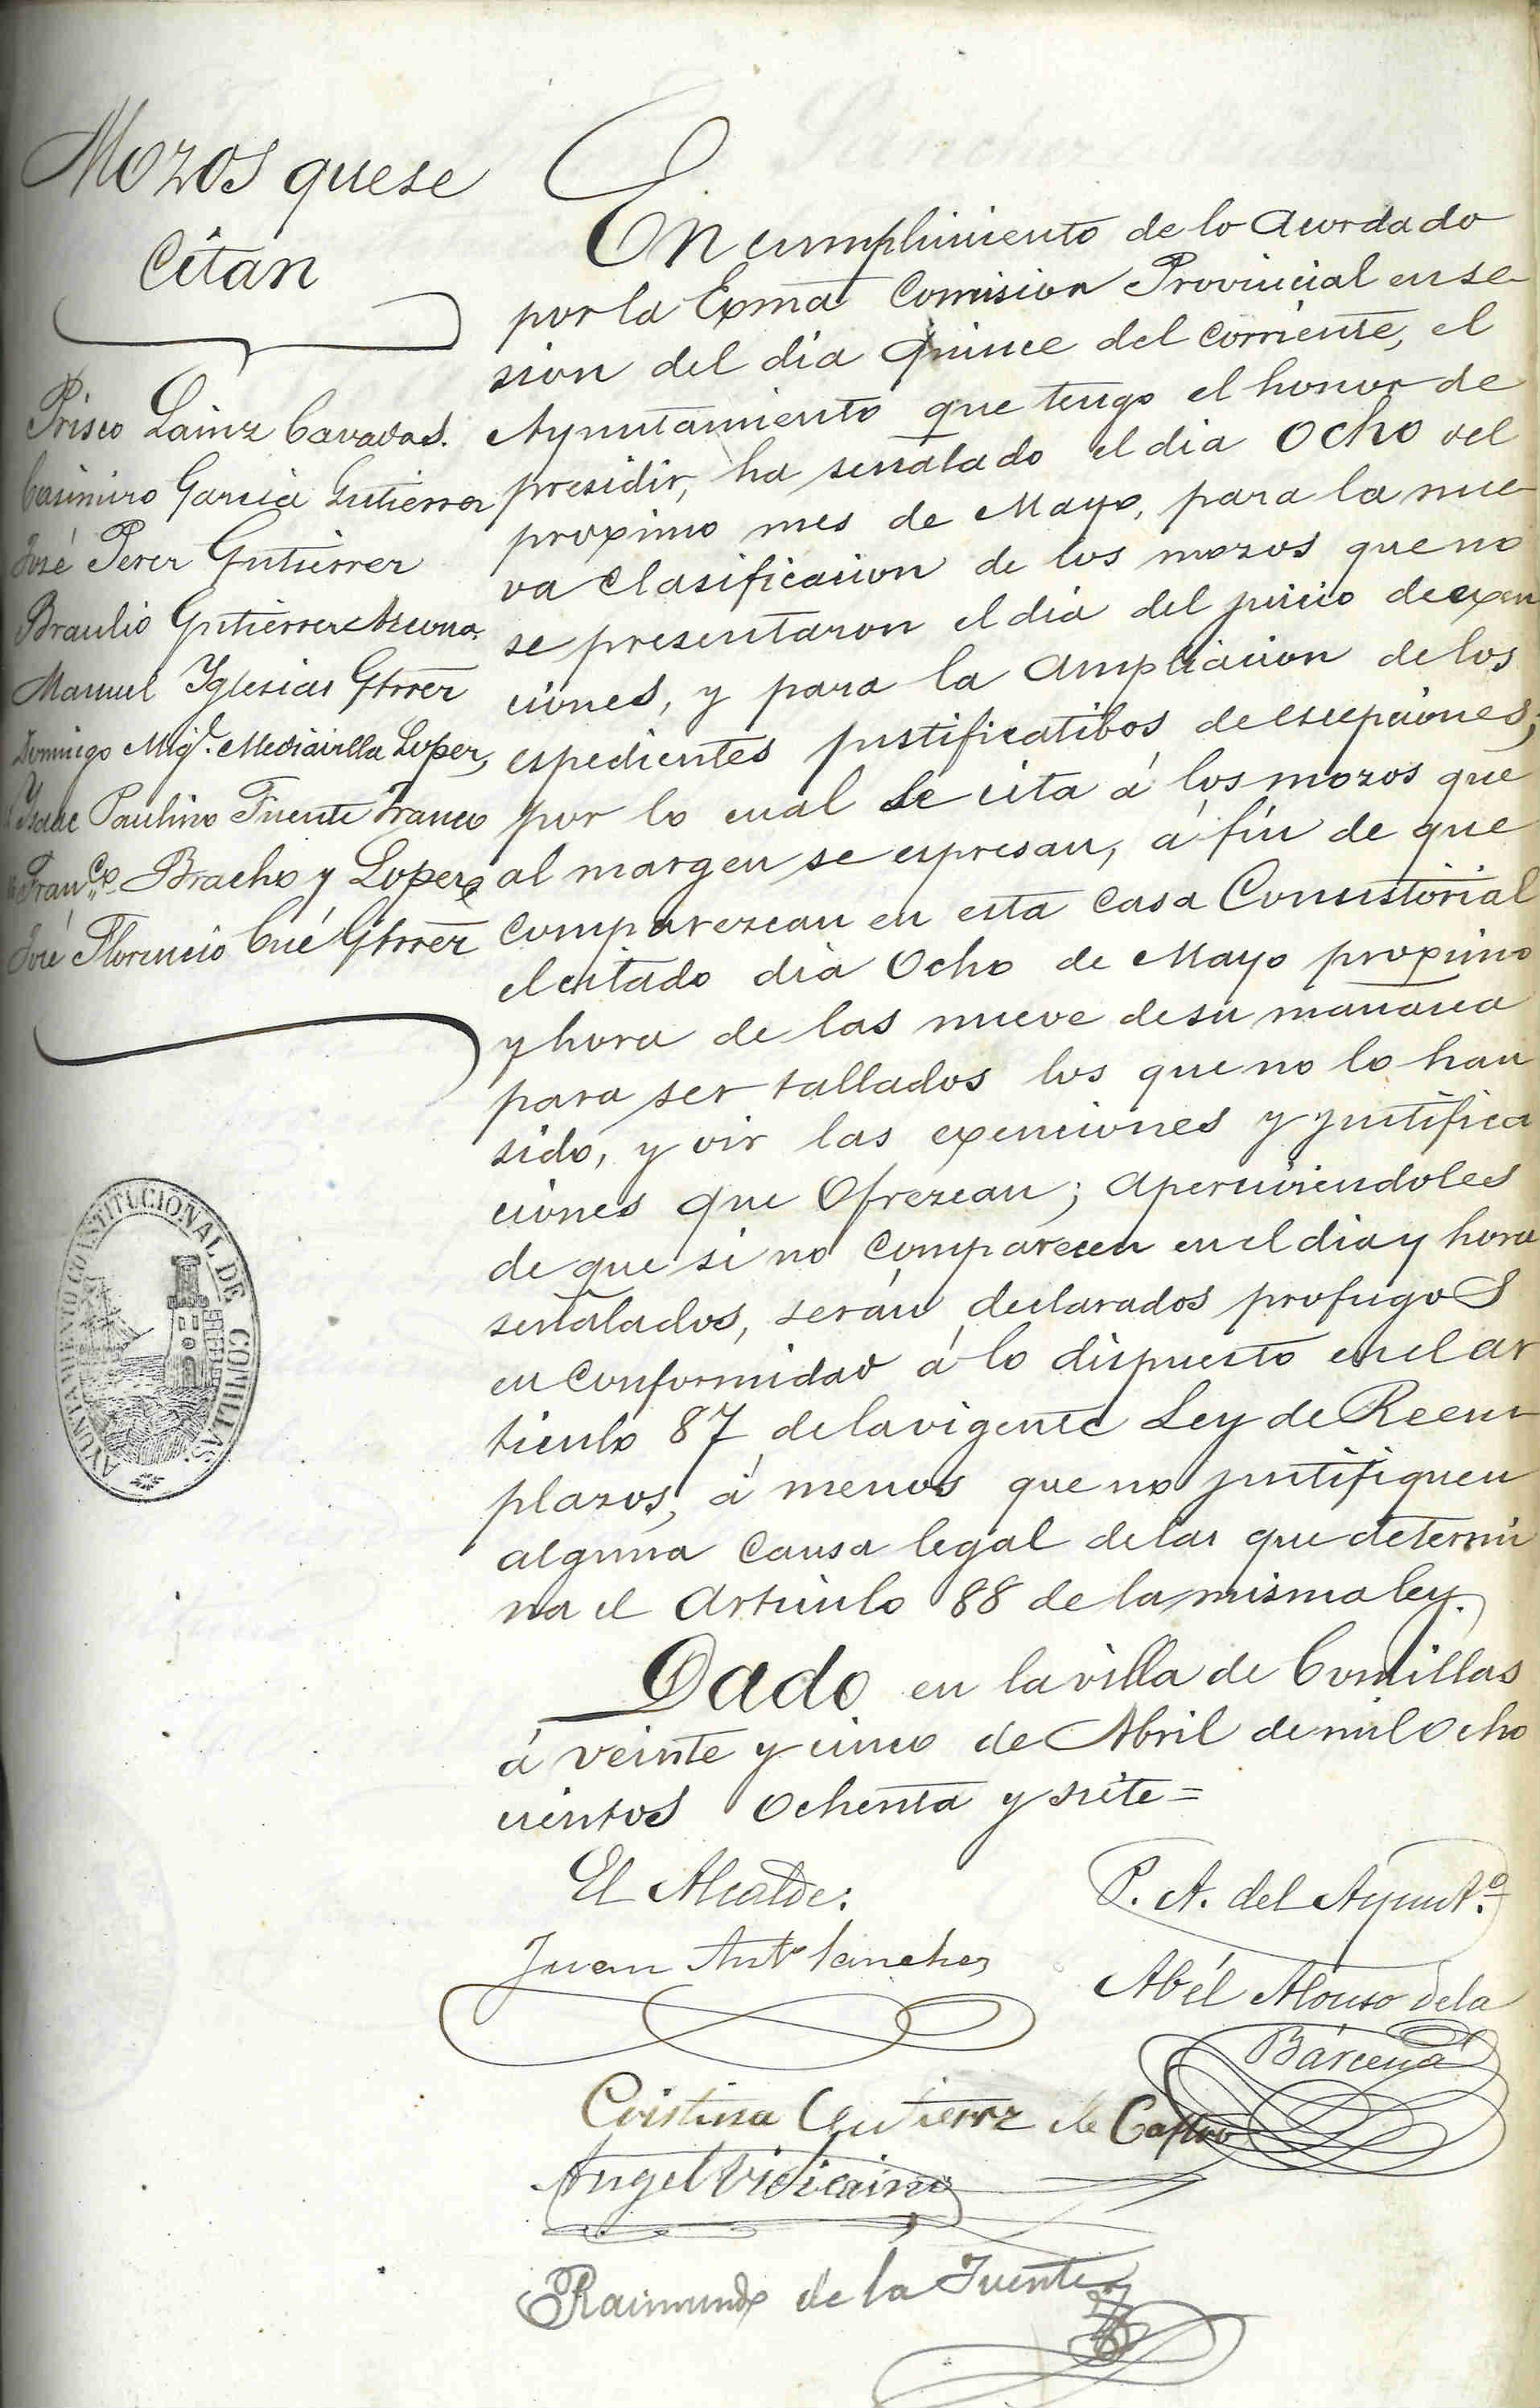 Mozos que se
Citan
Prisco Lainz Cavadas.
Casimiro Garcia Gutierrez
José Perez Gutierrez
Braulio Gutierrez Azcona.
Manuel Yglesias Gtrrez
Domingo Mig.l Mediavilla Lopez,
Ysaac Paulino Fuente Franco
Fran.co Bracho y Lopez
José Florencio Cué Gtrrez
AYUNTAMIENTO CONSTITUCIONAL DE COMILLAS
En cumplimiento de lo acordado
por la Exma Comision Provincial en se-
sion del dia quince del corriente, el
Ayuntamiento que tengo el honor de
presidir, ha señalado el dia Ocho del
proximo mes de Mayo, para la nue-
va clasificacion de los mozos que no
se presentaron el dia del juicio de exen
ciones, y para la ampliacion de los
espedientes justificatibos de escepciones;
por lo cual se cita á los mozos que
al margen se espresan, á fin de que
comparezcan en esta Casa Consistorial
el citado dia Ocho de Mayo proximo
y hora de las nueve de su mañana
para ser tallados los que no lo han
sido, y oir las exenciones y justifica
ciones que Ofrezcan; aperciviendoles
de que si no comparecen en el dia y hora
señalados, serán declarados profugos
en conformidad á lo dispuesto en el ar
ticulo 87 de la vigente Ley de Reem-
plazos, á menos que no justifiquen
alguna causa legal de las que determi
na el Articulo 88 de la misma ley.
Dado en la villa de Comillas
á veinte y cinco de Abril de mil Ocho
cientos Ochenta y siete=
El Alcalde:
Juan Ant.o Sanchez
P. A. del Ayunt.o
Abél Alonso de la
Bárcena
Cristina Gutierrez de Castro
Angel Vidicaino
Raimundo de la Fuente